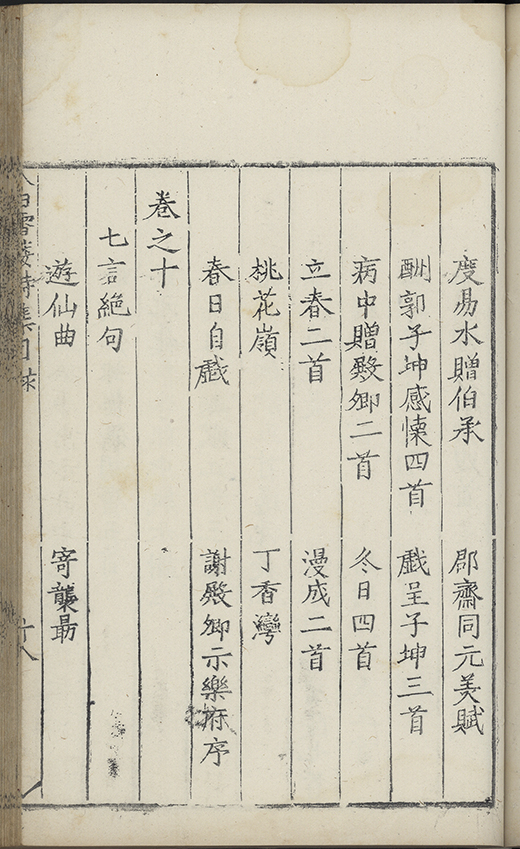 度易水贈伯承 郡齋同元美賦
酬郭子坤感懷四首 戲呈子坤三首
病中贈殿卿二首 冬日四首
立春二首 漫成二首
桃花嶺 丁香灣
春日自戲 謝殿卿示樂府序
卷之十
七言絕句
遊仙曲 寄襲勗
白雪樓詩集目錄